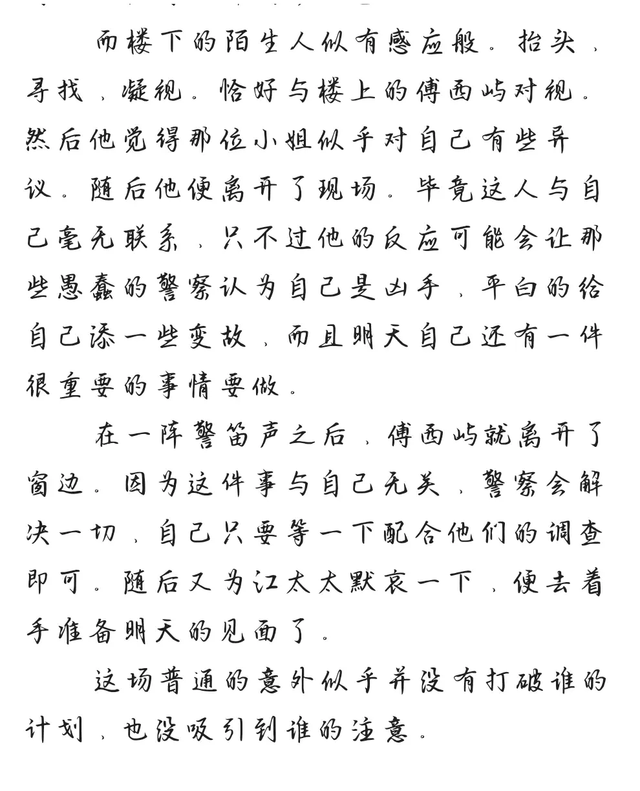 而楼下的陌生人似有感应般。抬头，
寻找，凝视。恰好与楼上的傅西屿对视。
然后他觉得那位小姐似乎对自己有些异
议。随后他便离开了现场。毕竟这人与自
己毫无联系，只不过他的反应可能会让那
些愚蠢的警察认为自己是凶手，平白的给
自己添一些变故，而且明天自己还有一件
很重要的事情要做。
在一阵警笛声之后，傅西屿就离开了
窗边。因为这件事与自己无关，警察会解
决一切，自己只要等一下配合他们的调查
即可。随后又为江太太默哀一下，便去着
手准备明天的见面了。
这场普通的意外似乎并没有打破谁的
计划，也没吸引到谁的注意。